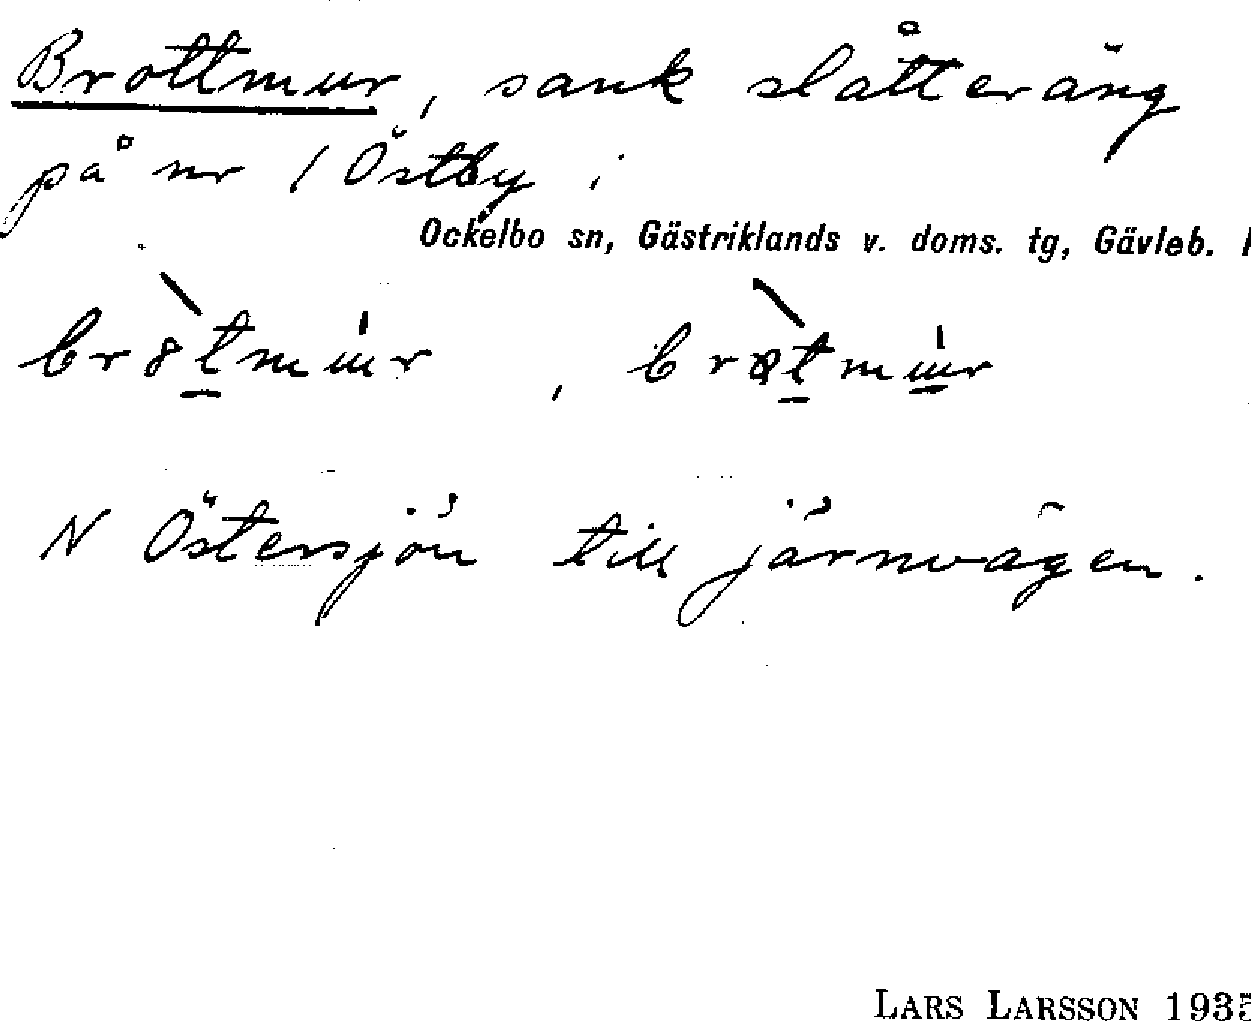 Brottmur, sank slåtteräng
på nr 1 Östby i
Ockelbo sn, Gästriklands v. doms. tg, Gävleb.
N Östersjön till järnvägen.
LARS LARSSON 1935